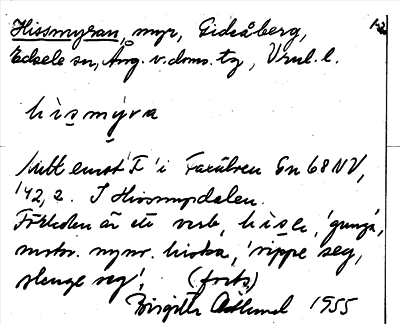 1-2
Hissmyran, myr, Gideåberg,
Edsele sn, Ång. v. doms. tg, Vnul. l.
hismyra
Mitt emot 'F' i Faxälven Gn 68 NV,
'42, 2. I Hissmyrdalen.
Förleden är ett verb, hisa, 'gunga',
motsv. nynor. hissa, 'vippe seg,
slenge seg'. (forts)
Birgitta Ödlund 1955